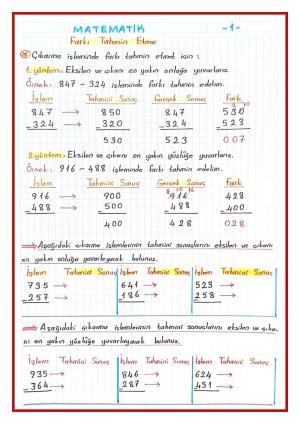 MATEMATİK -1-
Farkı Tahmin Etme
Çıkarma işleminde farkı tahmin etmek için :
1. yöntem = Eksilen ve çıkanı en yakın onluğa yuvarlarız.
Örnek: 847 - 324 işleminde farkı tahmin edelim.
İşlem Tahmini Sonuç Gerçek Sonuç Fark
847 → 850 847 530
- 324 → - 320 - 324 - 523
530 523 007
2. yöntem = Eksilen ve çıkanı en yakın yüzlüğe yuvarlarız.
Örnek: 916 - 488 işleminde farkı tahmin edelim.
İşlem Tahmini Sonuç Gerçek Sonuç Fark
916 → 900 916 428
- 488 → - 500 - 488 - 400
400 428 028
⇒ Aşağıdaki çıkarma işlemlerinin tahmini sonuçlarını eksilen ve çıkanı
en yakın onluğa yuvarlayarak bulunuz.
İşlem Tahmini Sonuç İşlem Tahmini Sonuç İşlem Tahmini Sonuç
735 → 641 → 523 →
- 257 → - 186 → - 258 →
⇒ Aşağıdaki çıkarma işlemlerinin tahmini sonuçlarını eksilen ve çıka-
nı en yakın yüzlüğe yuvarlayarak bulunuz.
İşlem Tahmini Sonuç İşlem Tahmini Sonuç İşlem Tahmini Sonuç
935 → 846 → 624 →
- 364 → - 287 → - 451 →